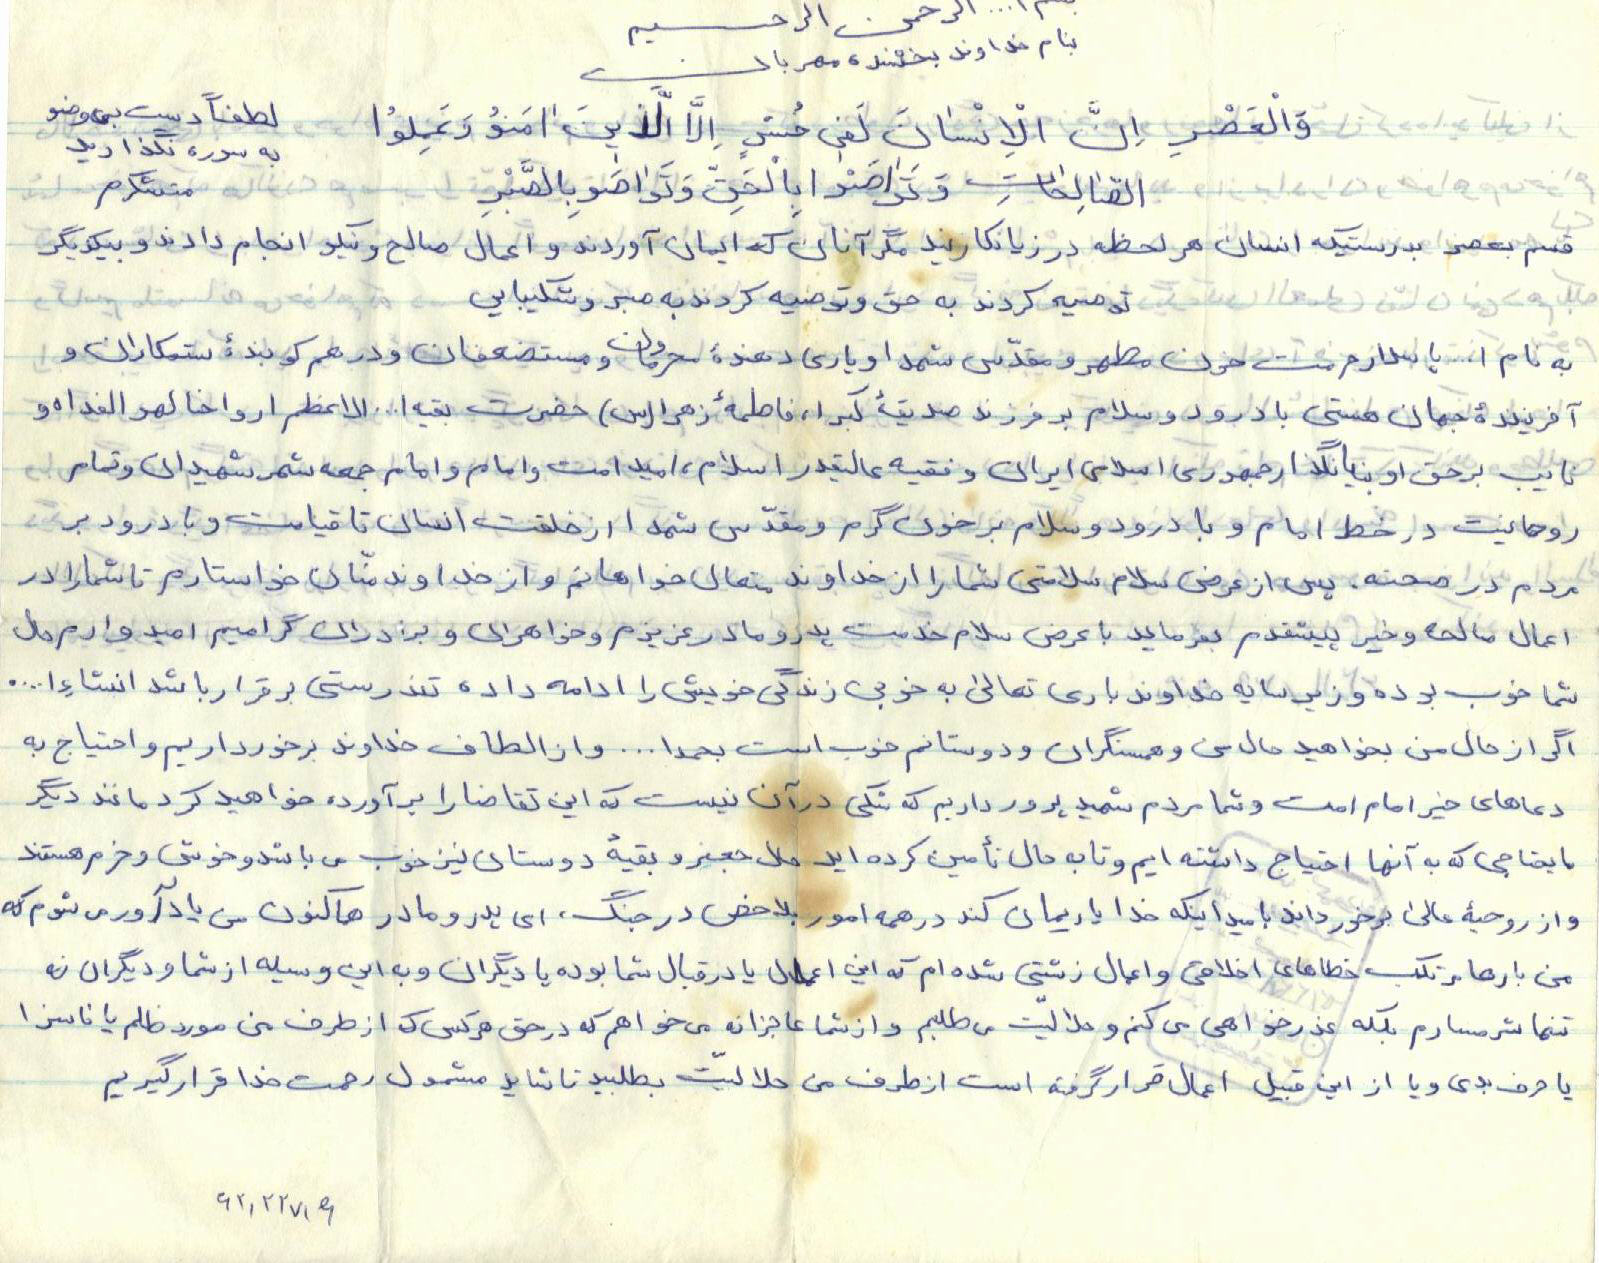 بسم ا... الرحمن الرحیم
بنام خداوند بخشنده مهربان
لطفاً دست بی وضو
به سوره نگذارید
متشکرم
وَالْعَصْرِ اِنَّ الْاِنْسٰانَ لَفی خُسْرٍ اِلَّا الَّذینَ اٰمَنوُ وَ عَمِلوُا
الصّٰالِحٰاتِ وَ تَوٰاصَوْا بِالْحَقِّ وَ تَوٰاصَوبِالصَّبْرِ
قسم بعصر بدرستیکه انسان هر لحظه در زیانکارند مگر آنان که ایمان آوردند و اعمال صالح و نیکو انجام دادند و بیکدیگر
توصیه کردند به حق و توصیه کردند به صبر و شکیبایی
به نام ا... پاسدار حرمت خون مطهر و مقدّس شهدا و یاری دهندهٔ محرومان و مستضعفان و درهم کوبندهٔ ستمکاران و
آفرینندهٔ جهان هستی با درود و سلام بر فرزند صدیقهٔ کبرا، فاطمهٔ زهرا (س) حضرت بقیه ا... الاعظم ارواحنا لهو الفداه و
نایب بر حق او بنیانگذار جمهوری اسلامی ایران و فقیه عالیقدر اسلام، امید امت و امام و امام جمعه شهر شهیدان و تمام
روحانیت در خط امام و با درود و سلام بر خون گرم و مقدّس شهدا از خلقت انسان تا قیامت و با درود بر
مردم در صحنه. پس از عرض سلام سلامتی شما را از خداوند متعال خواهانم و از خداوند منّان خواستارم تا شما را در
اعمال صالحه و خیر پیشقدم بفرماید با عرض سلام خدمت پدر و مادر عزیزم و خواهران و برادران گرامیم امیدوارم حال
شما خوب بوده و زیر سایه خداوند باری تعالیٰ به خوبی زندگی خویش را ادامه داده تندرستی برقرار باشد انشاءا....
اگر از حال من بخواهید حال من و همسنگران و دوستانم خوب است بحمدا... و از الطاف خداوند برخورداریم و احتیاج به
دعاهای خیر امام امت و شما مردم شهید پرور داریم که شکی در آن نیست که این تقاضا را برآورده خواهید کرد مانند دیگر
مایحتاجی که به آنها احتیاج داشته ایم و تا به حال تأمین کرده اید حال جعفر و بقیهٔ دوستان نیز خوب می باشد و خوش و خرم هستند
و از روحیهٔ عالیٰ برخورداند بامید اینکه خدا یاریمان کند در همه امور بلاخص در جنگ، ای پدر و مادر هم اکنون من یادآور می شوم که
من بارها مرتکب خطاهای اخلاقی و اعمال زشتی شده ام که این اعمال یا در قبال شما بوده یا دیگران و به این وسیله از شما و دیگران نه
تنها شرمسارم بلکه عذرخواهی می کنم و حلالیّت می طلبم و از شما عاجزانه می خواهم که در حق هر کس که از طرف من مورد ظلم یا ناسزا
یا حرف بدی و یا از این قبیل اعمال قرار گرفته است از طرف من حلالیّت بطلبید تا شاید مشمول رحمت خدا قرار گیریم